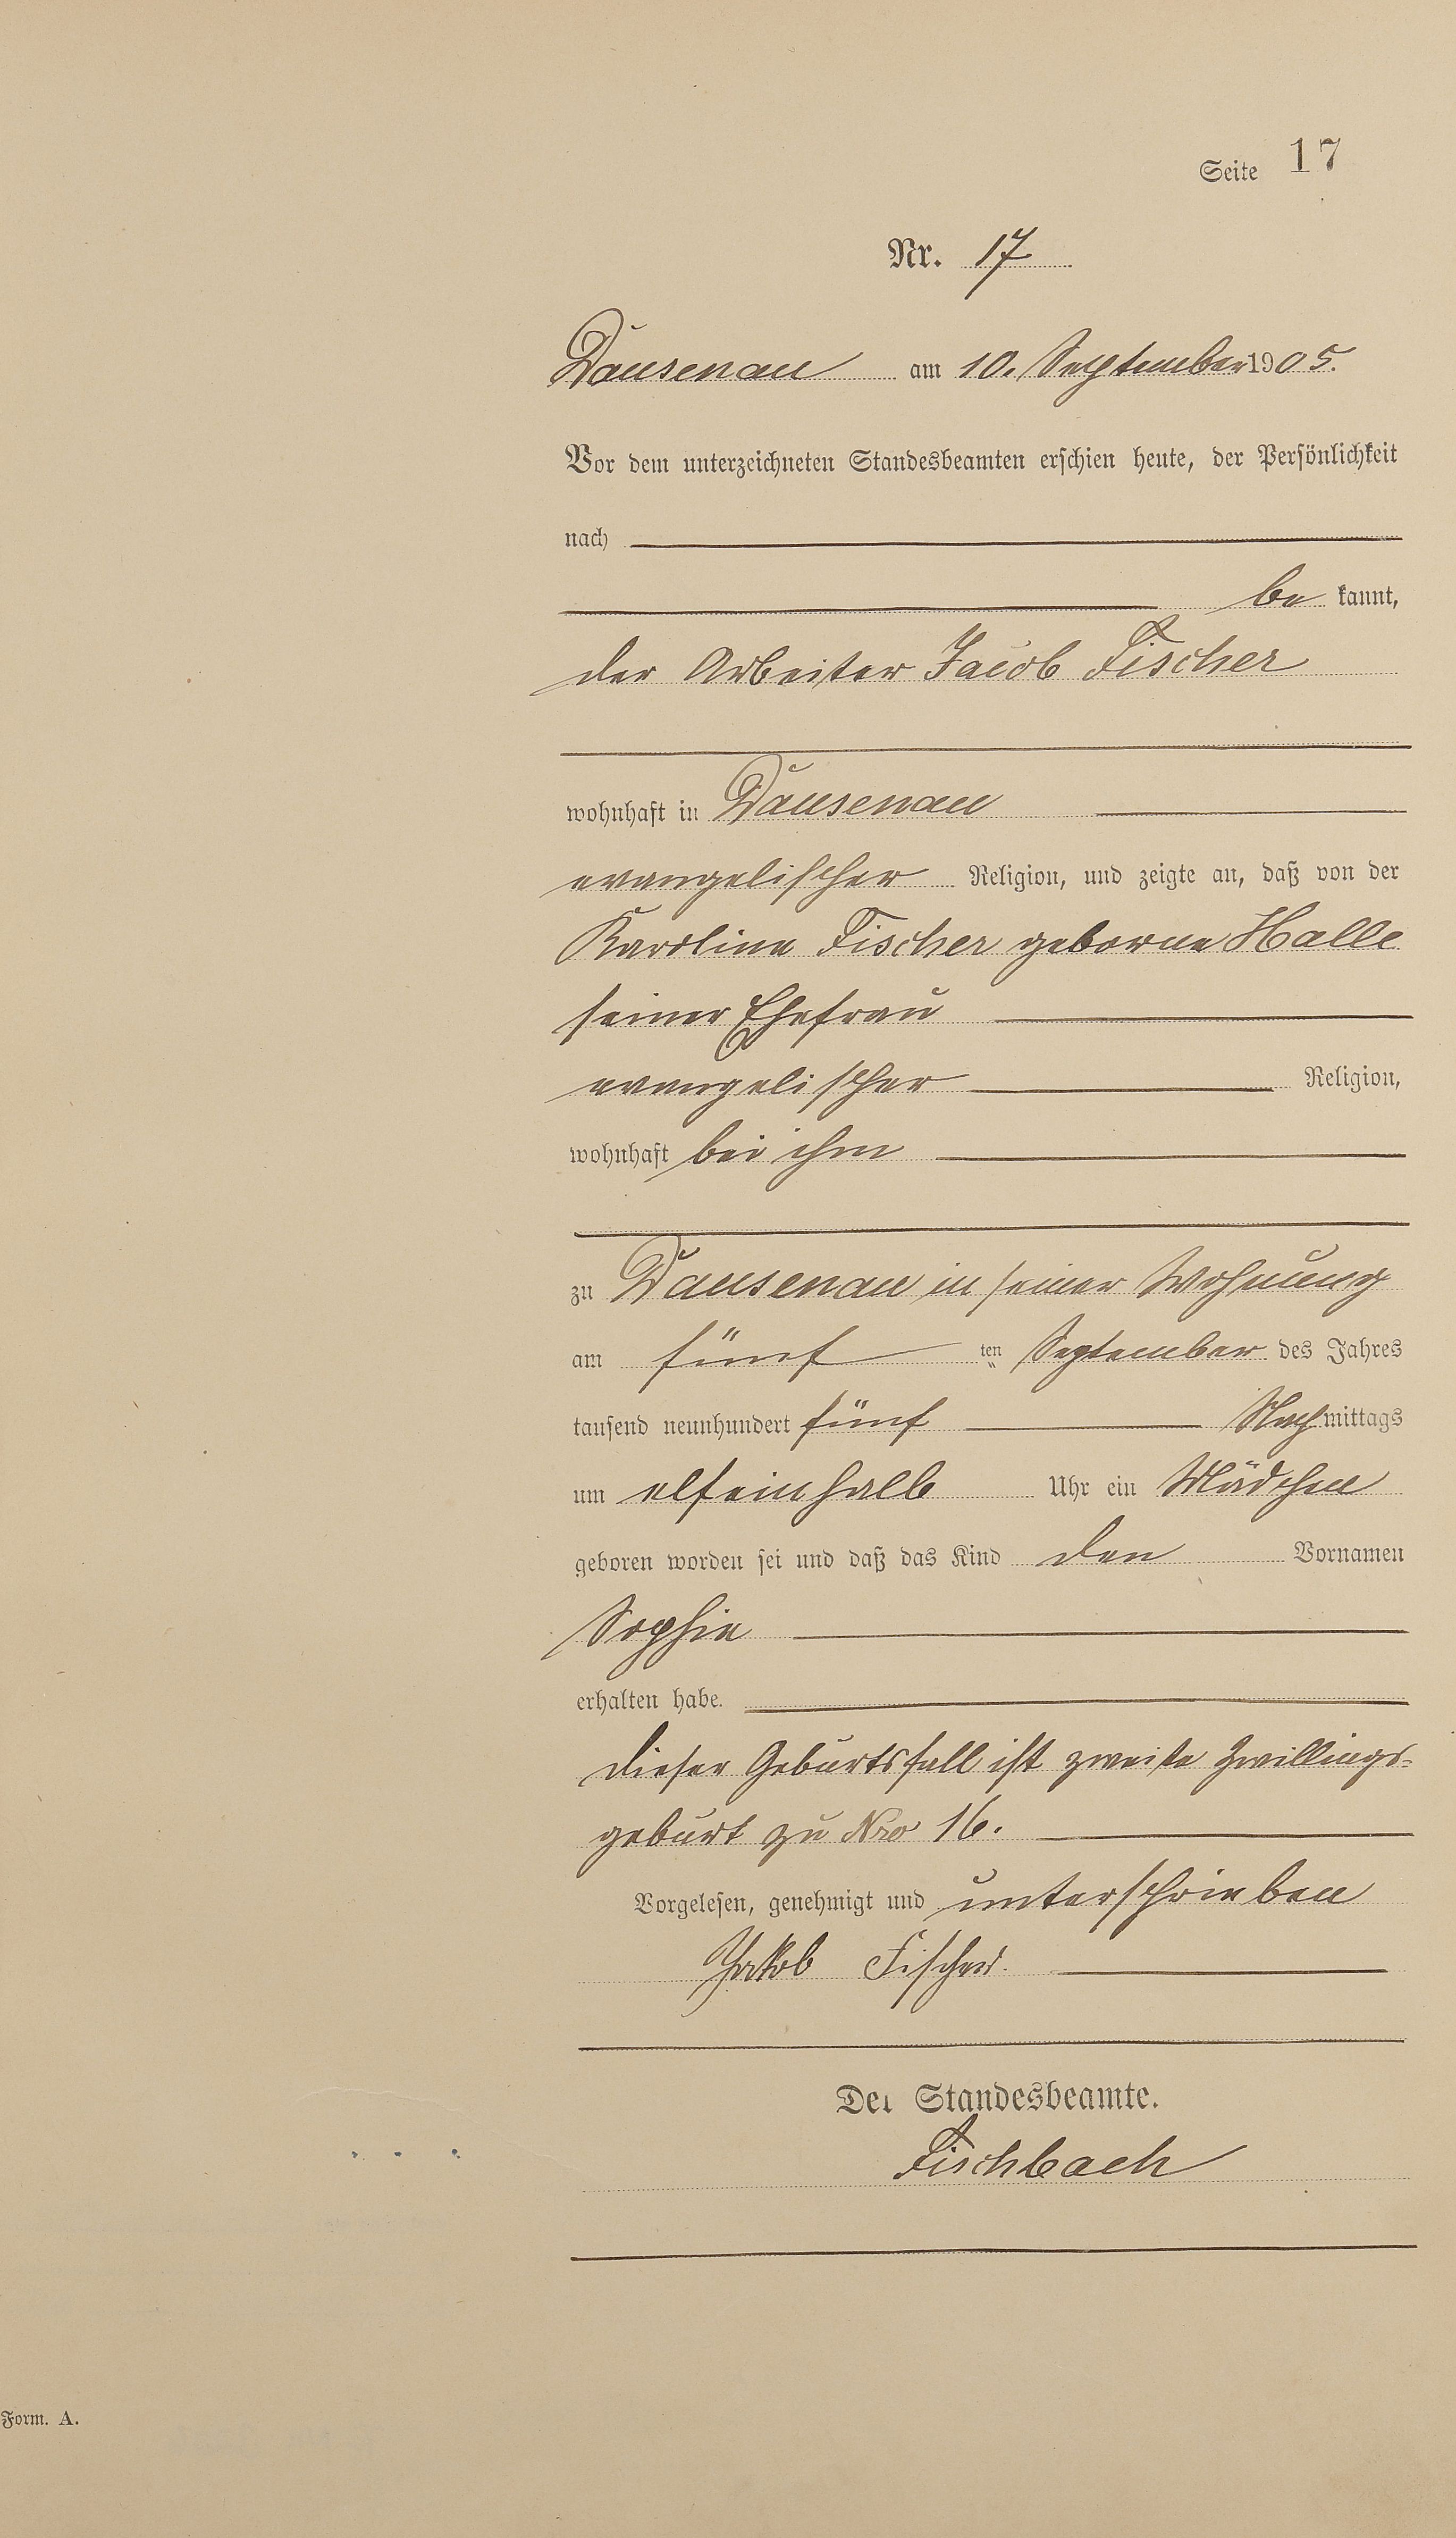 Seite 17
Nr. 17
Dausenau am 10. September 1905.
Vor dem unterzeichneten Standesbeamten erschien heute, der Persönlichkeit
nach
be kannt,
der Arbeiter Jacob Fischer
wohnhaft in Dausenau
evangelischer Religion, und zeigte an, daß von der
Karoline Fischer geborne Halle
seiner Ehefrau
evangelischer Religion,
wohnhaft bei ihm
zu Dausenau in seiner Wohnung
am fünf ten September des Jahres
tausend neunhundert fünf Nachmittags
um elfeinhalb Uhr ein Mädchen
geboren worden sei und daß das Kind den Vornamen
Sophie
erhalten habe.
Dieser Geburtsfall ist zweite Zwillings-
geburt zu Nro 16.
Vorgelesen, genehmigt und unterschrieben
Jakob Fischer.
Der Standesbeamte.
Fischbach
Form. A.